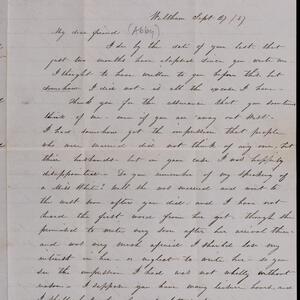 Waltham Sept 27 /57
My dear friend (Abby)
I see by the date of your last, that
just two months have elapsed since you wrote me.
I thought to have written to you before this, but
somehow I did not - is all the excuse I have -
Thank you for the assurance that you sometimes
think of me - even if you are away out West.
I had somehow got the impression that people
who were married did not think of any one, but
their husbands - but in your case I was happily
disappointed - Do you remember of my speaking of
a Miss White? Well she was married and went to
the west soon after you did - and I have not
heard the first word from her yet, though she
promised to write very soon after her arrival there -
and was very much afraid I should lose my
interest in her - or neglect to write her - so you
see the impression I had was not wholly without
reason - I suppose you have many